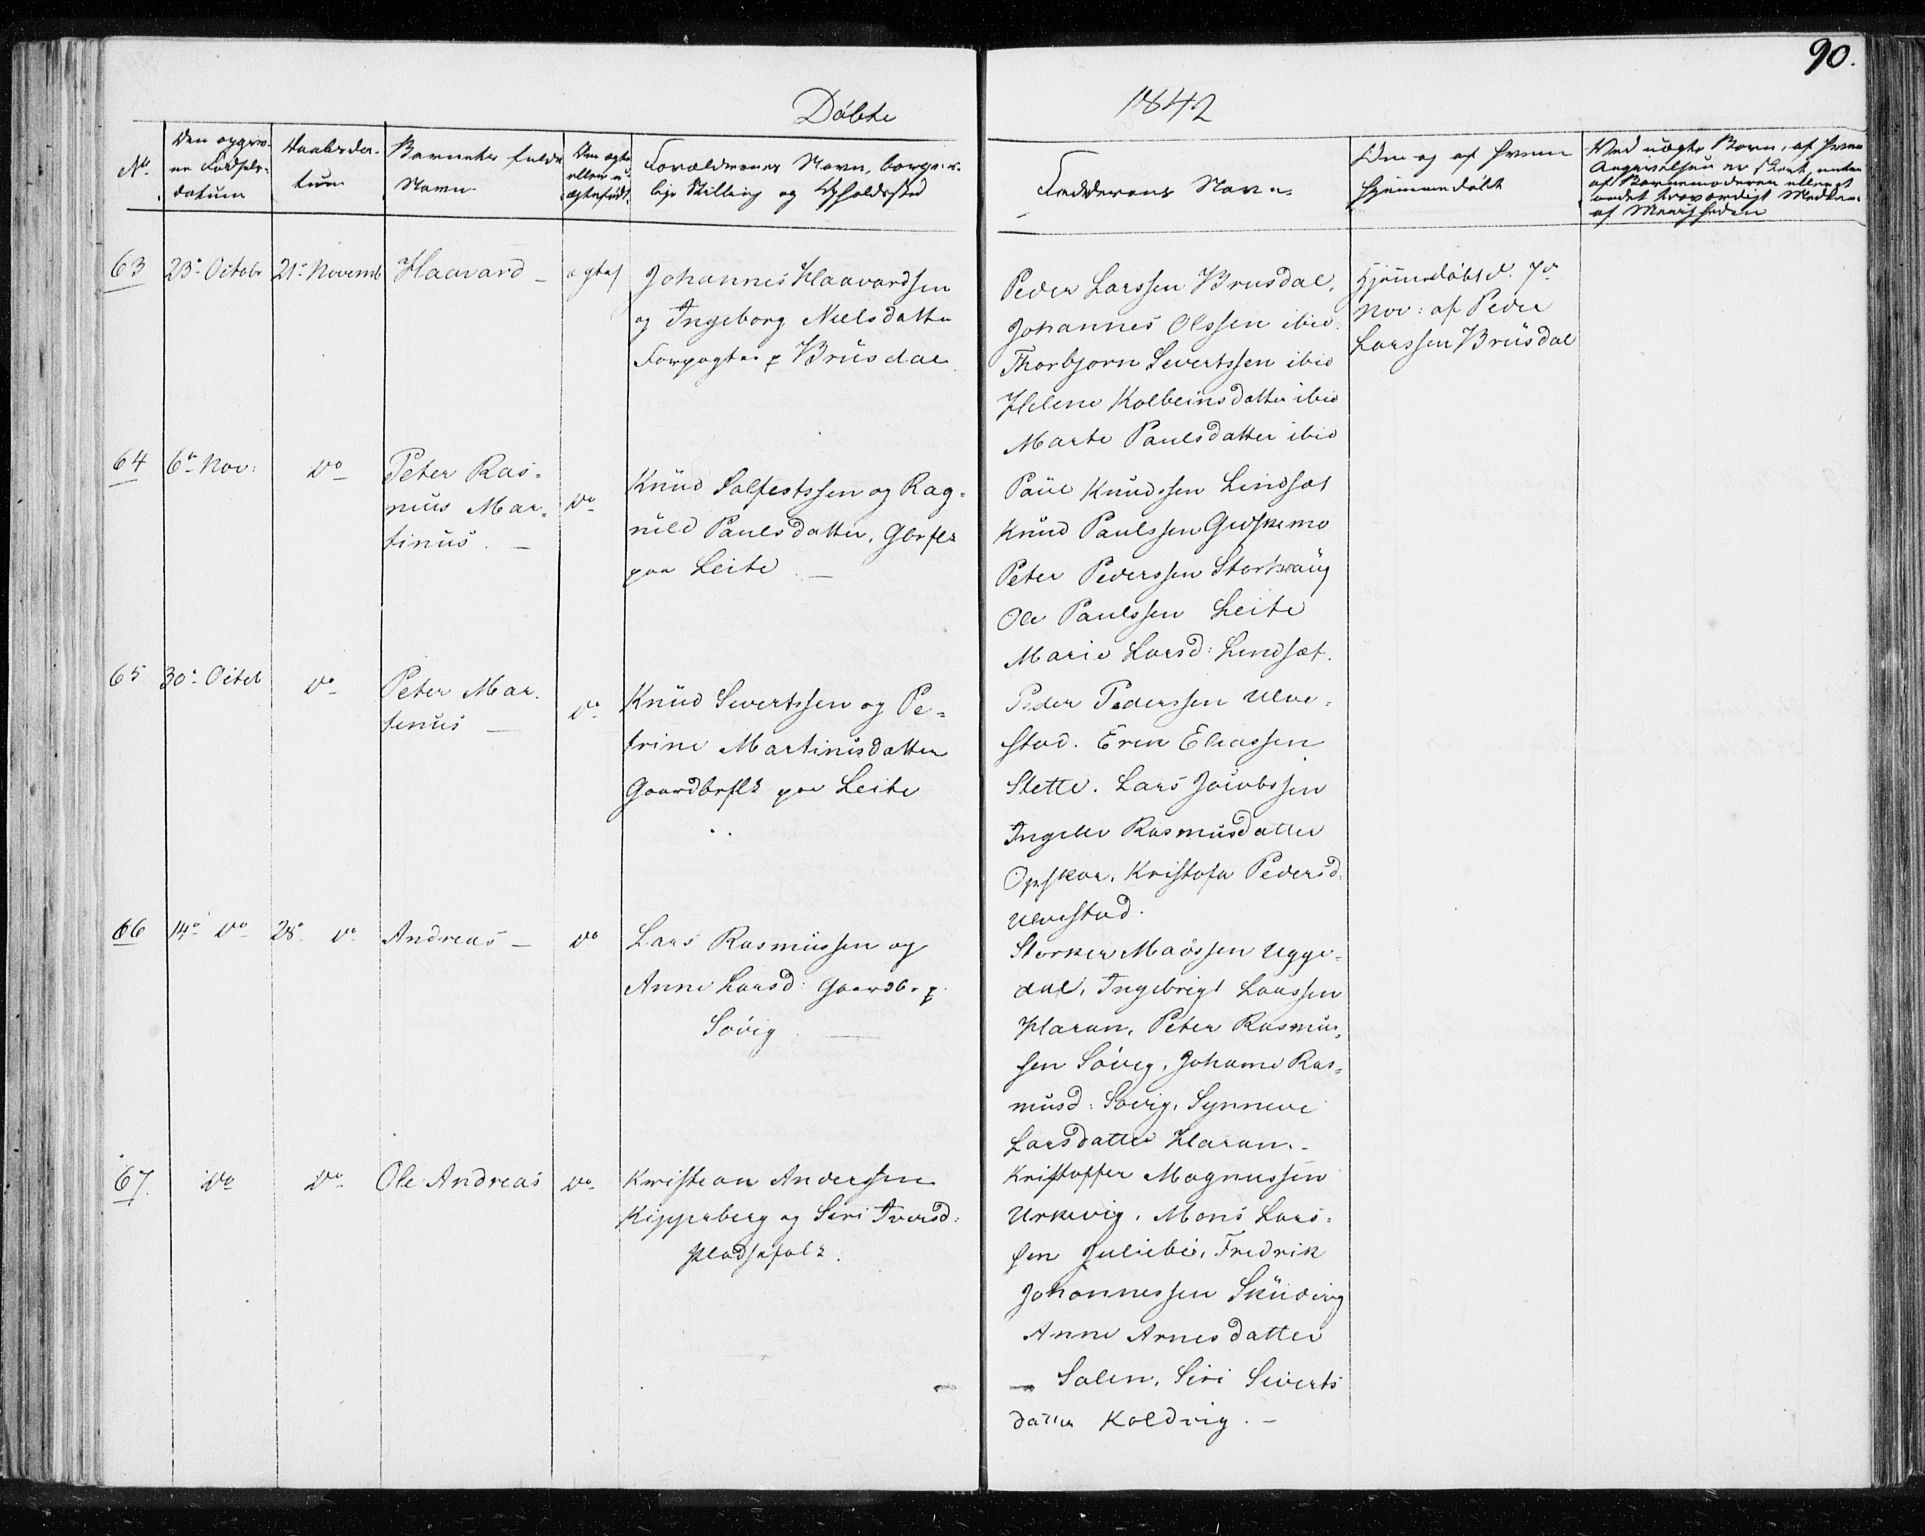 90.
Døbte
1842
No
Den opgiv-
ne Fødsels-
datum
Daabsda-
tum
Barnets fulde
Navn
Om ægte
eller u-
ægtefødt.
Forældrenes Navn, borger-
lige Stilling og Opholdssted
Faddernes Navn
Om og af hvem
hjemmedøbt
Ved uægte Børn, af hvem
Angivelsen er skeet, enten
af Barnemoderen eller et
andet troværdigt
63
23de Octobr
21de Novemb
Haavard —
ægtef
Johannes Haavardsen
og Ingeborg Nielsdatter
Forpagter p Brusdal.
Peder Larssen Brusdal,
Johannes Olssen ibid.
Thorbjørn Sivertssen ibid
Helene Kolbeinsdatter ibid
Marte Paulsdatter ibid
Hjemdøbt d. 7de
Nov: af Peder
Larssen Brusdal
64
6te Nov:
do
Peter Ras-
mus Mar-
tinus. —
do
Knud Salfestssen og Rag-
nild Paulsdatter, Gbrflk
paa Leite. —
Paul Knudssen Lindsæt
Knud Paulssen Giskemo
Peter Pederssen
Ole Paulssen Leite
Marie Larsd: Lindsæt.
65
30te Octob
do
Peter Mar-
tinus —
do
Knud Sivertssen og Pe-
trine Martinusdatter
Gaardbrflk paa Leite
Peder Pederssen Ulve-
stad. Eren Eliassen
Slette. Lars Jacobssen
Rasmusdatter
Opskar. Kristofa Pedersd.
Ulvestad.
66
14de do
28de do
Andreas —
do
Lars Rasmussen og
Anne Larsd: Gaardbr p
Søvig. —
Storker Madssen Ugge-
dal, Ingebrigt Larssen
Haran, Peter Rasmus-
sen Søvig. Johanne Ras-
musd: Søvig. Synneve
Larsdatter Haran. -
67.
do
do
Ole Andreas
do
Kristian Anderssen
Kipperberg og Siri Iversd:
Pladsefolk.
Kristoffer Magnussen
Urkevig. Mons Lars-
sen Juliebø, Fredrik
Johannessen
Anne Arnesdatter
— Salen, Siri Siverts
datter Koldvig. —